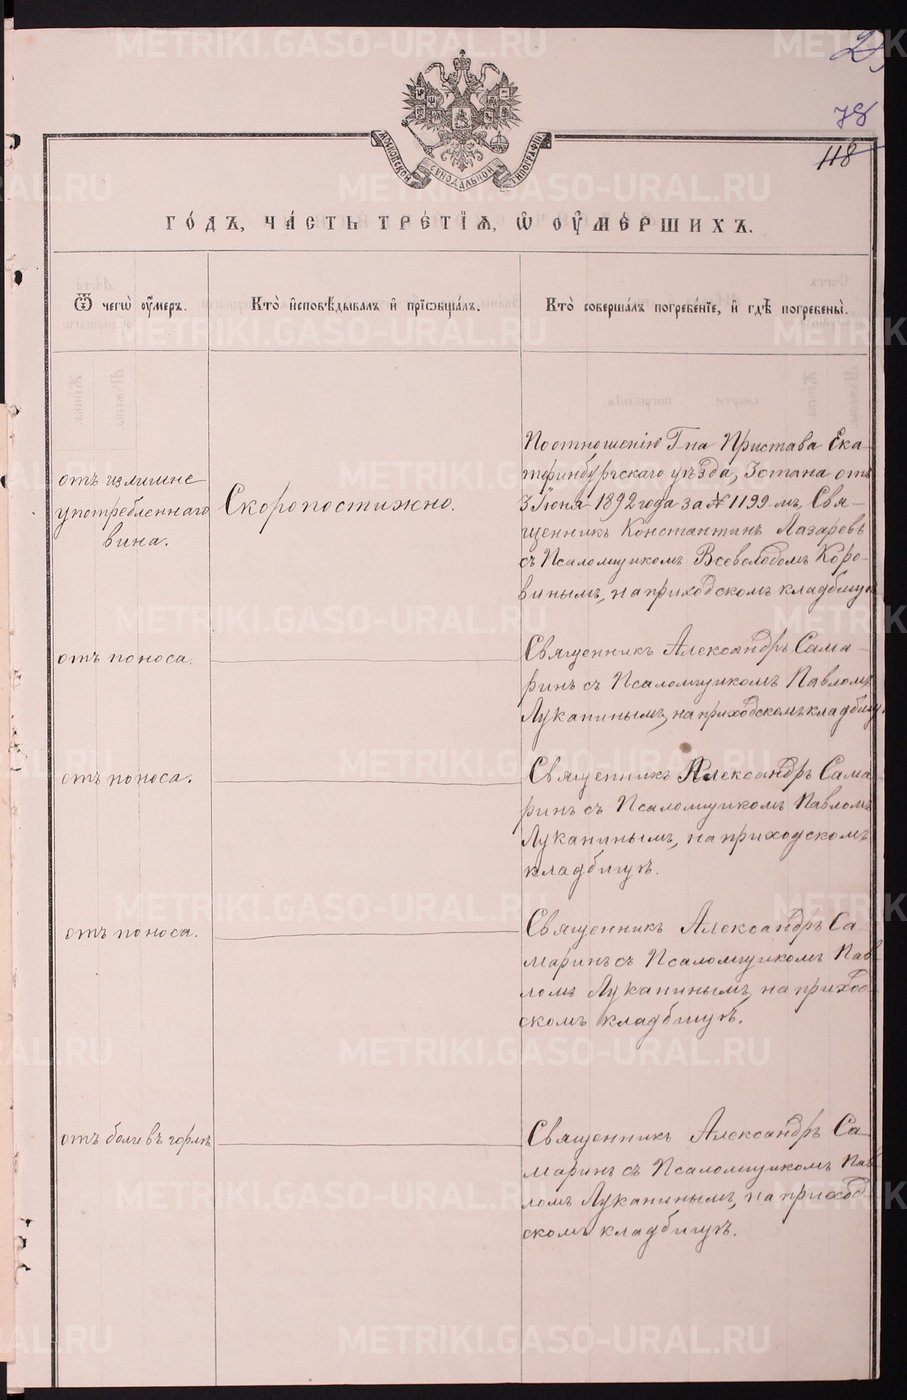 METRIKI.GASO-URAL.RU
78
118
МОСКОВСКОЙ СѴНОДАЛЬНОЙ ТИПОГРАФІИ
ГО́ДЪ, ЧА́СТЬ ТРЕ́ТІѦ, Ѡ҆ ОУ҆МЕ́РШИХЪ.
Ѿ чегѡ̀ оу҆́меръ.
Кто̀ и҆сповѣ́дывалъ и҆ прїѡбща́лъ.
Кто̀ соверша́лъ погребе́нїе, и҆ гдѣ̀ погребены̀.
отъ излишне
употребленнаго
вина.
Скоропостижно.
По отношенію Г-на Пристава Ека-
теринбургскаго уѣзда, 3 стана отъ
3 Іюня 1892 года за № 1199-мъ, Свя-
щенникъ Константинъ Лазаревъ
съ Псаломщикомъ Всеволодомъ Коро-
винымъ, на приходскомъ кладбищѣ
отъ поноса.
Священникъ Александръ Сама-
ринъ съ Псаломщикомъ Павломъ
Луканинымъ, на приходскомъ кладбищѣ
отъ поноса.
Священникъ Александръ Сама-
ринъ съ Псаломщикомъ Павломъ
Луканинымъ, на приходскомъ
кладбищѣ.
отъ поноса.
Священникъ Александръ Са-
маринъ съ Псаломщикомъ Пав-
ломъ Луканинымъ, на приход-
скомъ кладбищѣ.
отъ боли въ горлѣ
Священникъ Александръ Са-
маринъ съ Псаломщикомъ Пав-
ломъ Луканинымъ, на приход-
скомъ кладбищѣ.